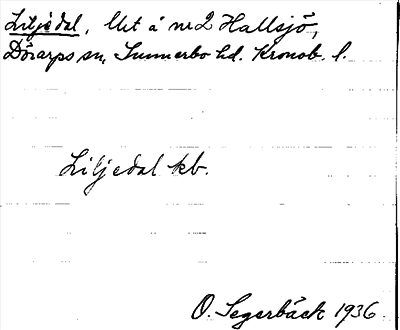 Liljedal, lht å nr 2 Hallsjö,
Dörarps sn, Sunnerbo hd. Kronob. l.
Liljedal kb.
O. Segerbäck 1936.